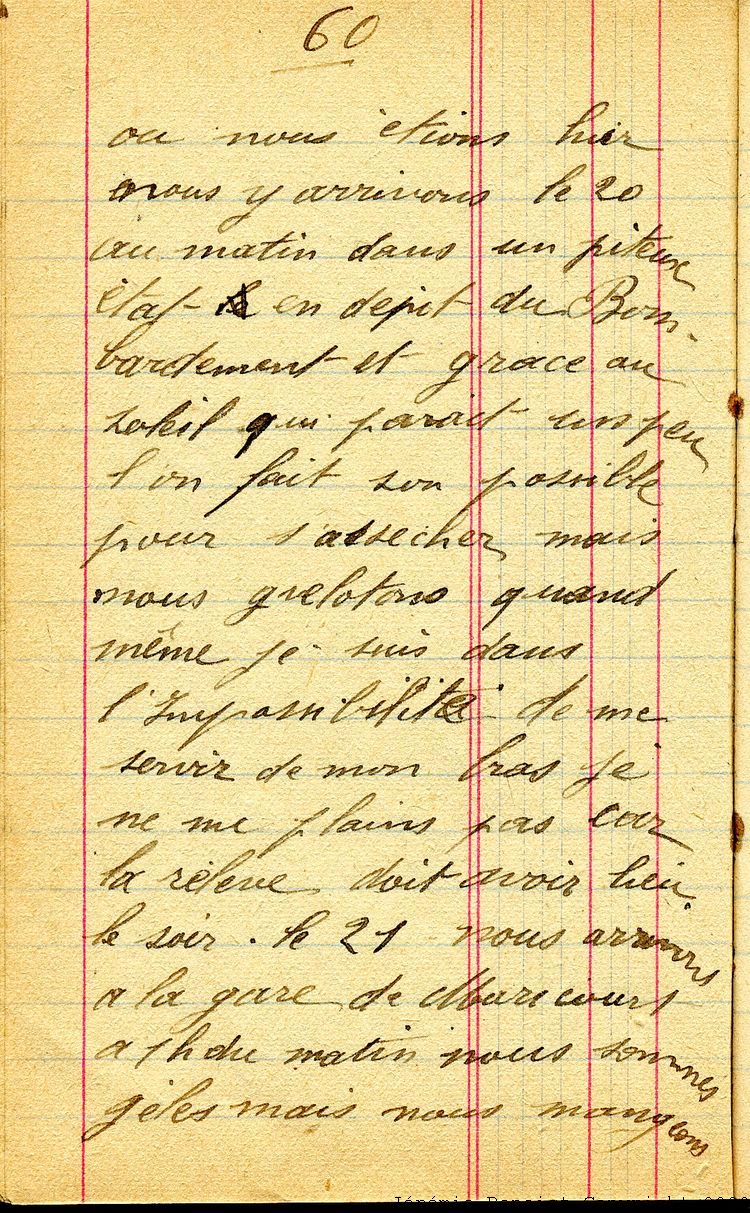 60
ou nous étions hier
nous y arrivons le 20
au matin dans un piteux
état en dépit du Bom-
bardement et grace au
soleil qui parait un peu
l'on fait son possible
pour s'assecher mais
nous grelotons quand
même je suis dans
l'Impossibilité de me
servir de mon bras je
ne me plains pas car
la rélève doit avoir lieu
le soir. le 21 nous arrivons
a la gare de Maricourt
a 1h du matin nous sommes
gélés mais nous mangeons